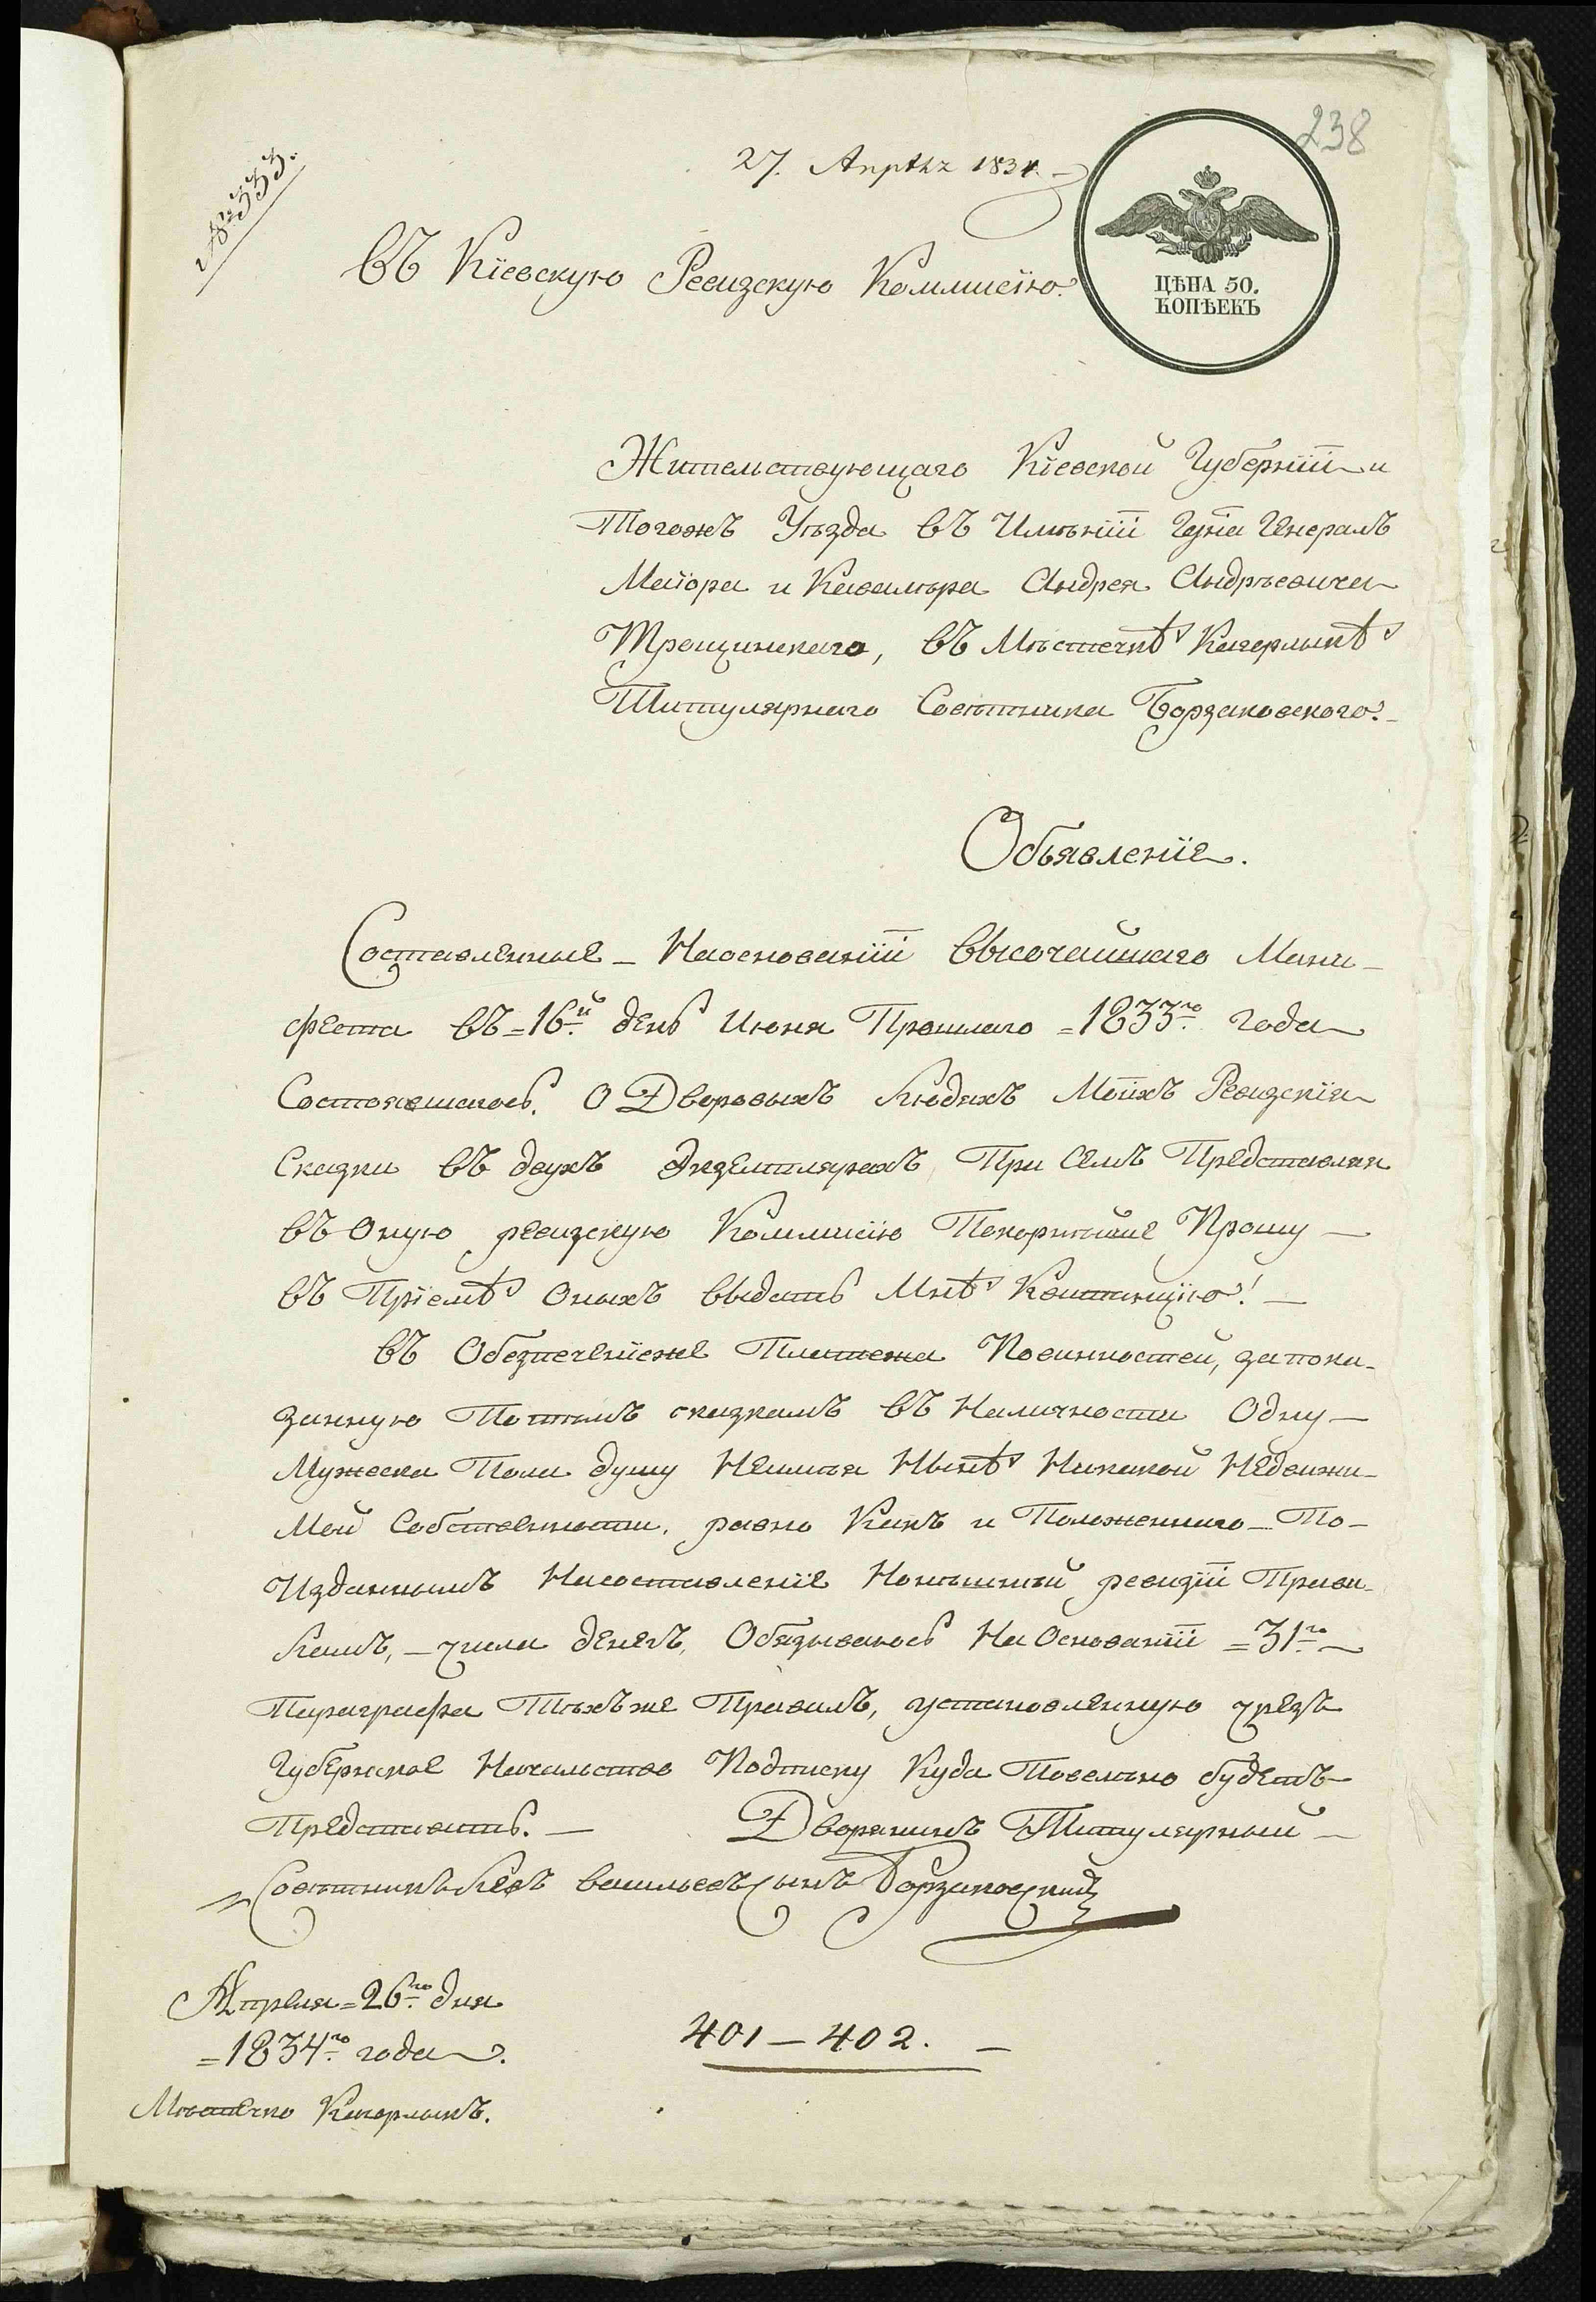 238
27. Апрѣля 1834.
№ 333.
Въ Кіевскую Ревизскую Коммисію.
ЦѢНА 50.
КОПѢЕКЪ
Жительствующаго Кіевской Губерніи и
Тогожъ Уѣзда въ Имѣніи Гдна Генералъ
Маіора и Кавалѣра Андрея Андрѣевича
Трощинскаго, въ Мѣстечкѣ Кагерлыкѣ
Титулярнаго Совѣтника Борзаковского.
Объявленіе.
Составленные – Наоснованіи Высочайшаго Мани-
феста въ = 16й день Июня Прошлаго = 1833го года
Состоявшагось. О Дворовыхъ Людяхъ Моихъ Ревизскія
Сказки въ двухъ Экземплярахъ При Семъ Представляя
въ Оную ревизскую Коммисію Покорнѣйше Прошу –
въ Пріемѣ Оныхъ выдать Мнѣ Квитанцію! –
въ Обезпеченіеже Платежа Повинностей, за пока-
занную Потѣмъ сказкамъ въ Наличности Одну –
Мужеска Пола душу Неимѣя Нынѣ Никакой Недвижи-
мой Собственности, равно Какъ и Положеннаго – По –
Изданнымъ Насоставленіе Нонѣшней ревизіи Прави-
ламъ, – числа денегъ, Обязываюсь На Основаніи = 31го –
Параграфа Тѣхъже Правилъ, установленную чрезъ
Губернское Начальство Подписку Куда Повелѣно будетъ
Представить. – Дворянинъ Титулярный –
Совѣтникъ Левъ Васильевъ сынъ Борзаковский
Апреля = 26го дня
= 1834го года.
401 – 402. –
Мѣстечко Кагорлыкъ.